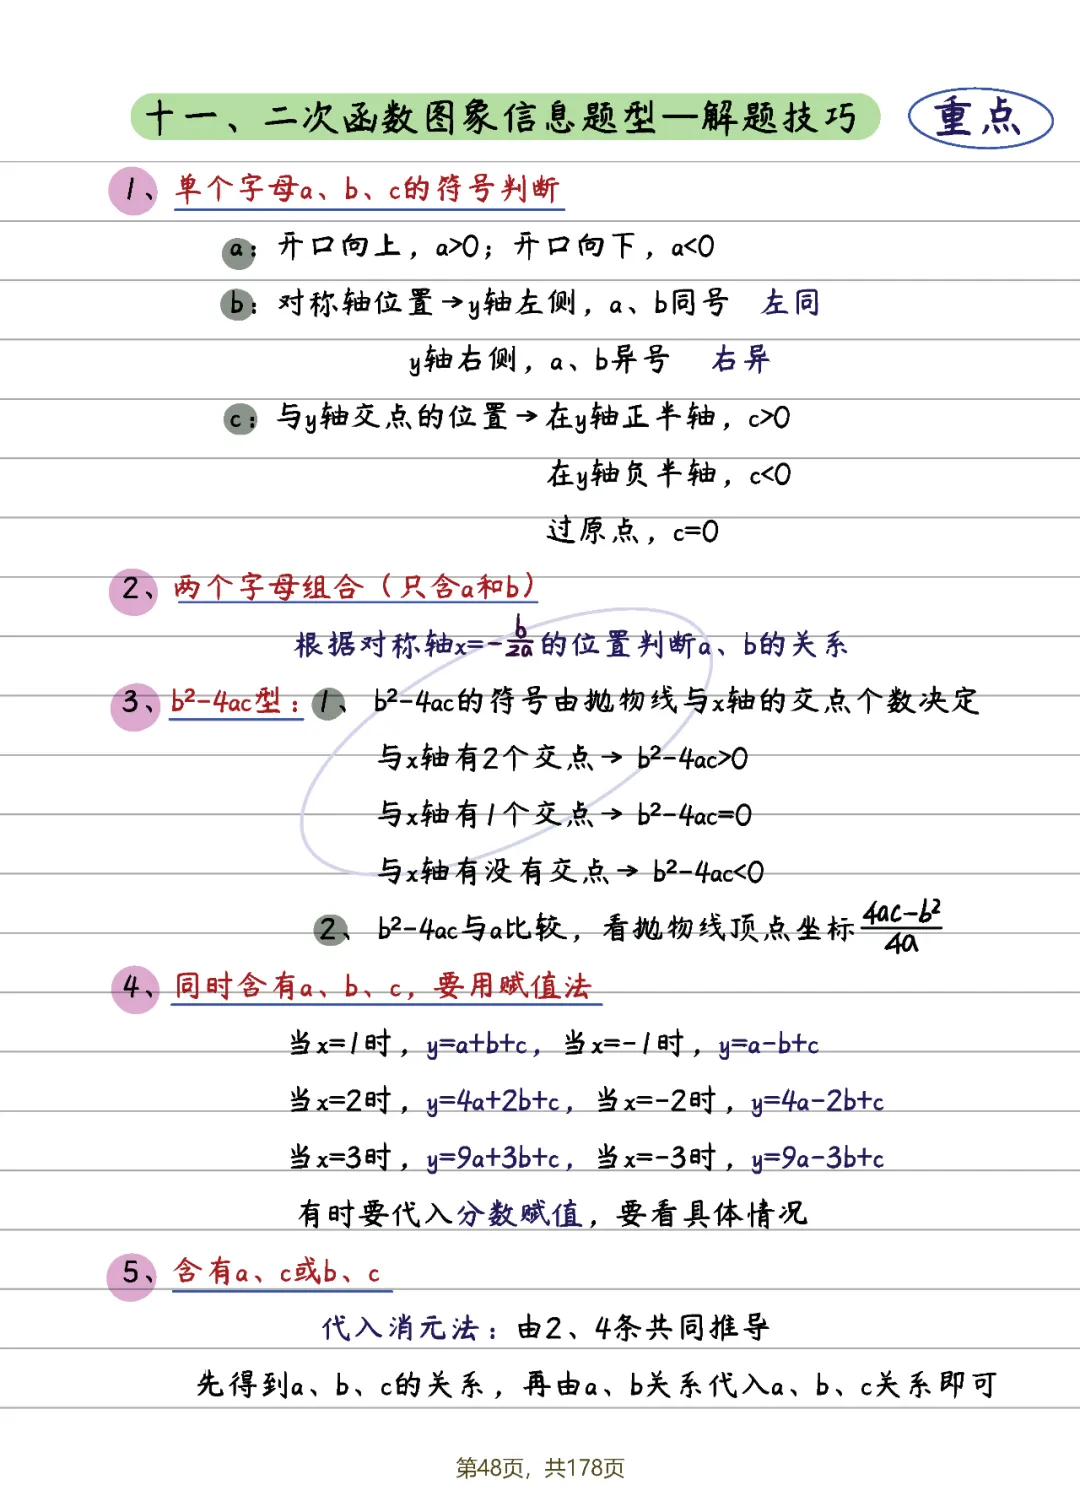 十一、二次函数图象信息题型—解题技巧 重点
1、单个字母a、b、c的符号判断
a：开口向上，a>0；开口向下，a<0
b：对称轴位置→y轴左侧，a、b同号 左同
y轴右侧，a、b异号 右异
c：与y轴交点的位置→在y轴正半轴，c>0
在y轴负半轴，c<0
过原点，c=0
2、两个字母组合（只含a和b）
根据对称轴x=-b/2a的位置判断a、b的关系
3、b²-4ac型：1、b²-4ac的符号由抛物线与x轴的交点个数决定
与x轴有2个交点→b²-4ac>0
与x轴有1个交点→b²-4ac=0
与x轴有没有交点→b²-4ac<0
2、b²-4ac与a比较，看抛物线顶点坐标4ac-b²/4a
4、同时含有a、b、c，要用赋值法
当x=1时，y=a+b+c，当x=-1时，y=a-b+c
当x=2时，y=4a+2b+c，当x=-2时，y=4a-2b+c
当x=3时，y=9a+3b+c，当x=-3时，y=9a-3b+c
有时要代入分数赋值，要看具体情况
5、含有a、c或b、c
代入消元法：由2、4条共同推导
先得到a、b、c的关系，再由a、b关系代入a、b、c关系即可
第48页，共178页